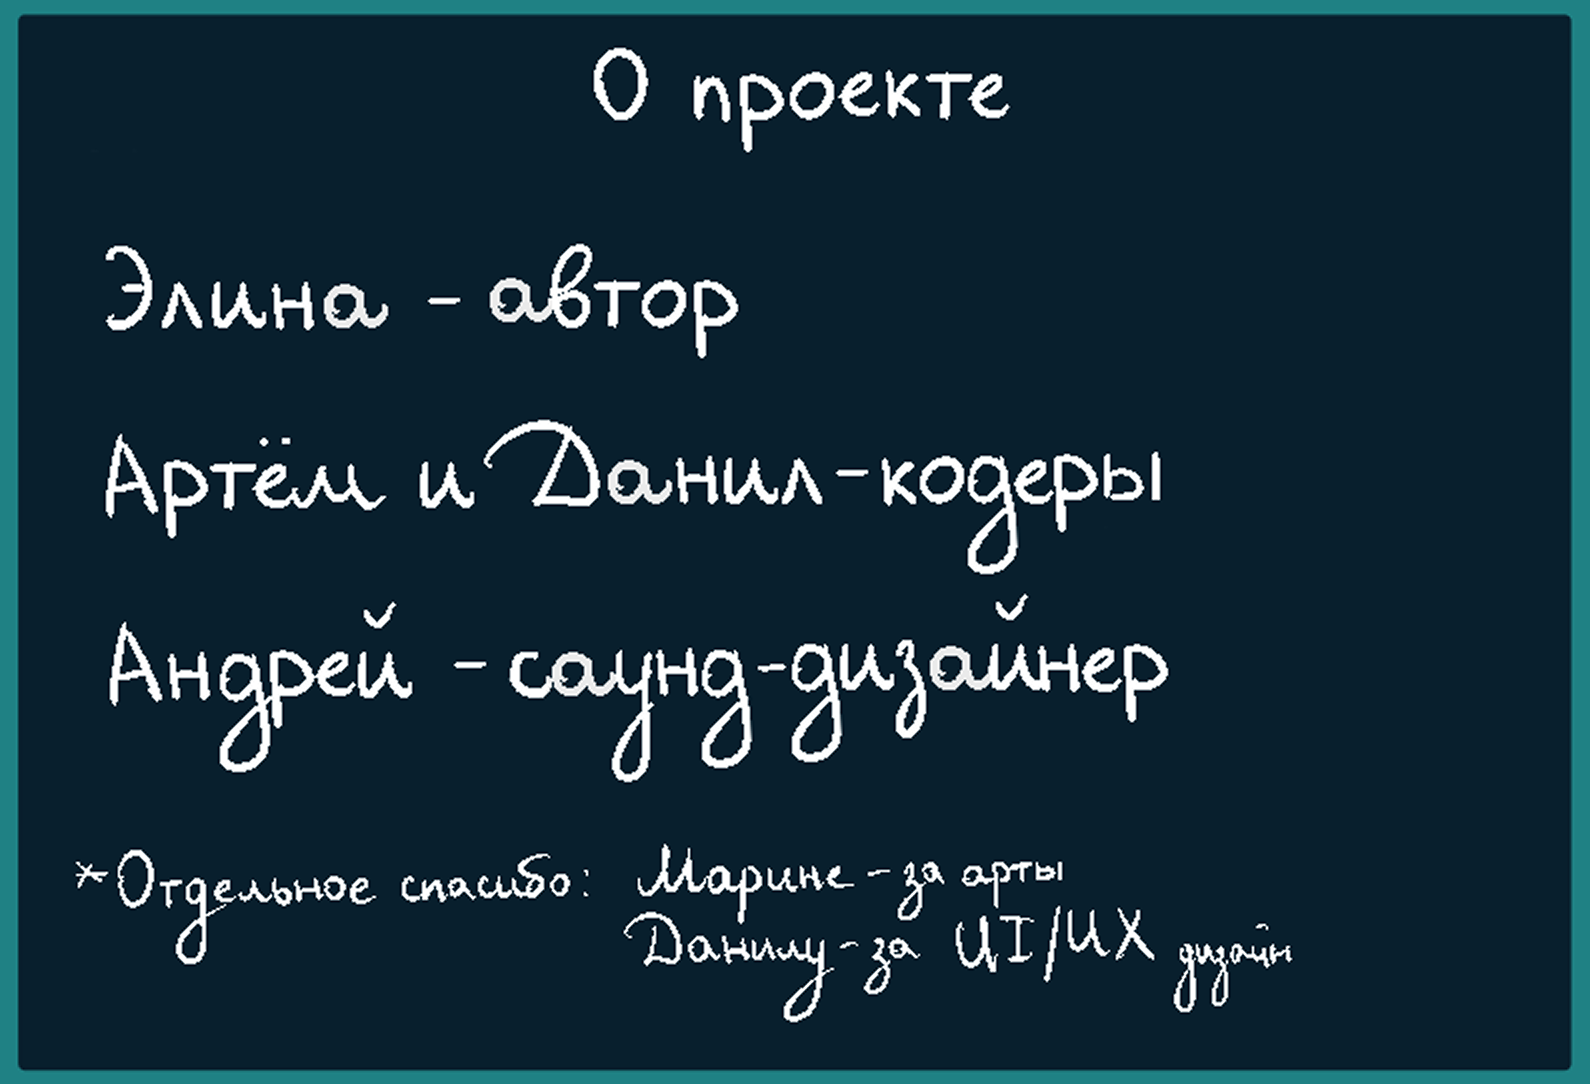 О проекте
Элина - автор
Артём и Данил - кодеры
Андрей - саунд-дизайнер
*Отдельное спасибо: Марине - за арты
Данилу - за UI/UX дизайн